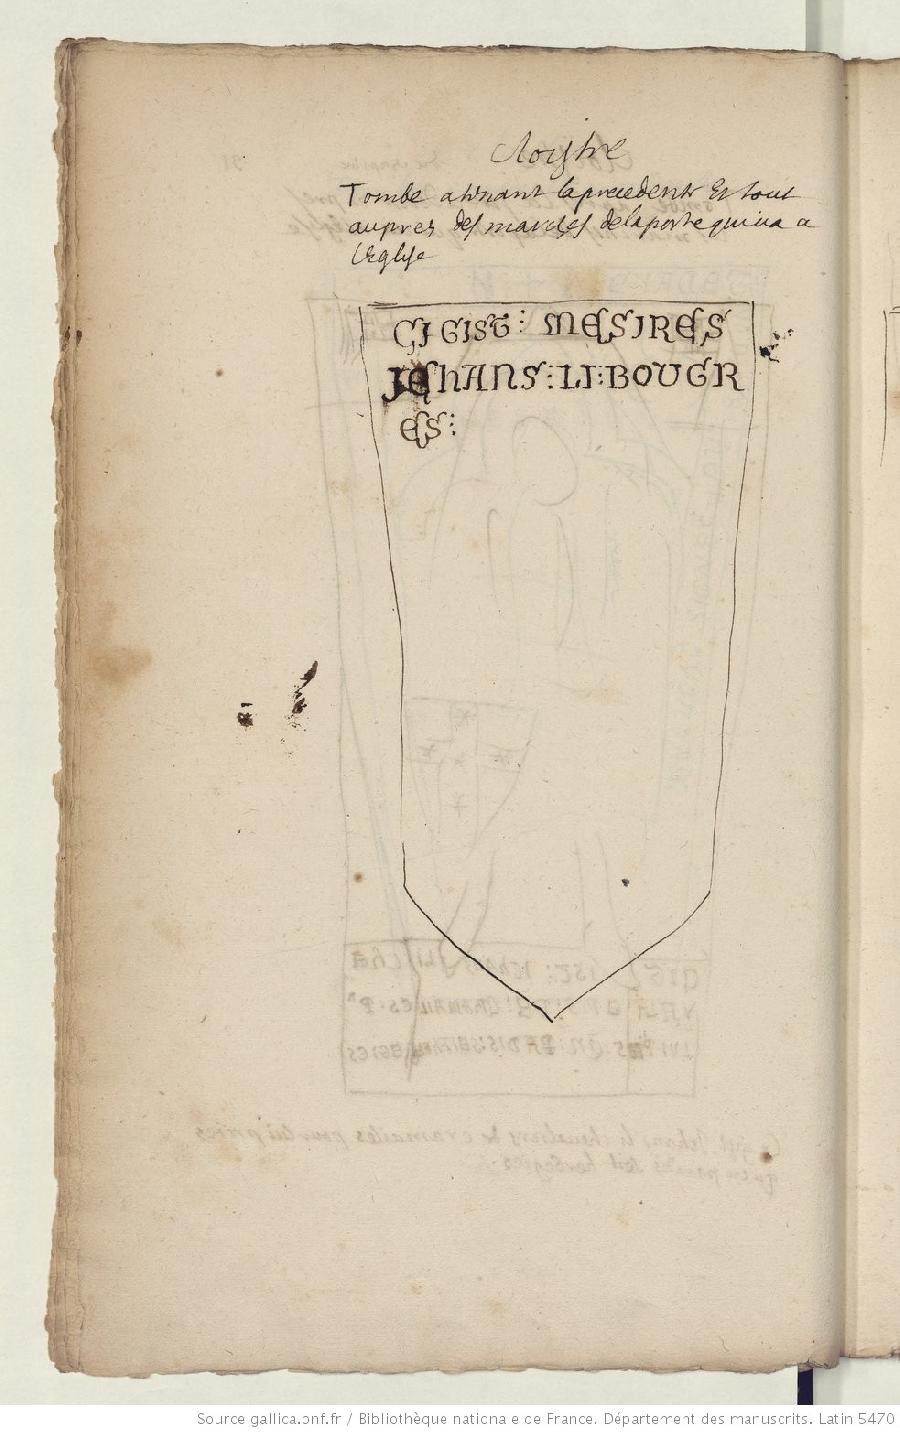 Cloystre
Tombe atenant la precedente Et tout
aupres des marches de la porte qui va a
l'Eglise
CI GIST : MESIRES
JEHANS : LI : BOUGR
ES :
Source gallica.bnf.fr / Bibliothèque nationale de France. Département des manuscrits. Latin 5470